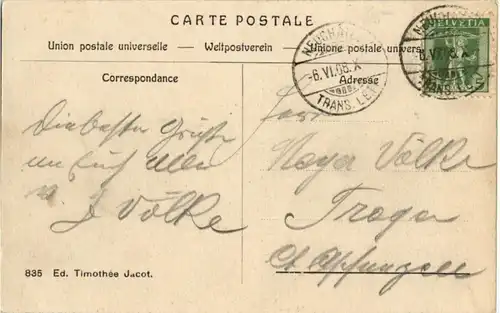 CARTE POSTALE
Union postale universelle — Weltpostverein — Unione postale univers
HELVETIA
NEUCHÂTEL
-6.VI.08.X
TRANS. LETT.
Correspondance
Adresse
Die besten Grüße
an Euch allen
J Völke
Herr
Völke
Trogen
Ct Appenzell
835 Ed. Timothée Jacot.